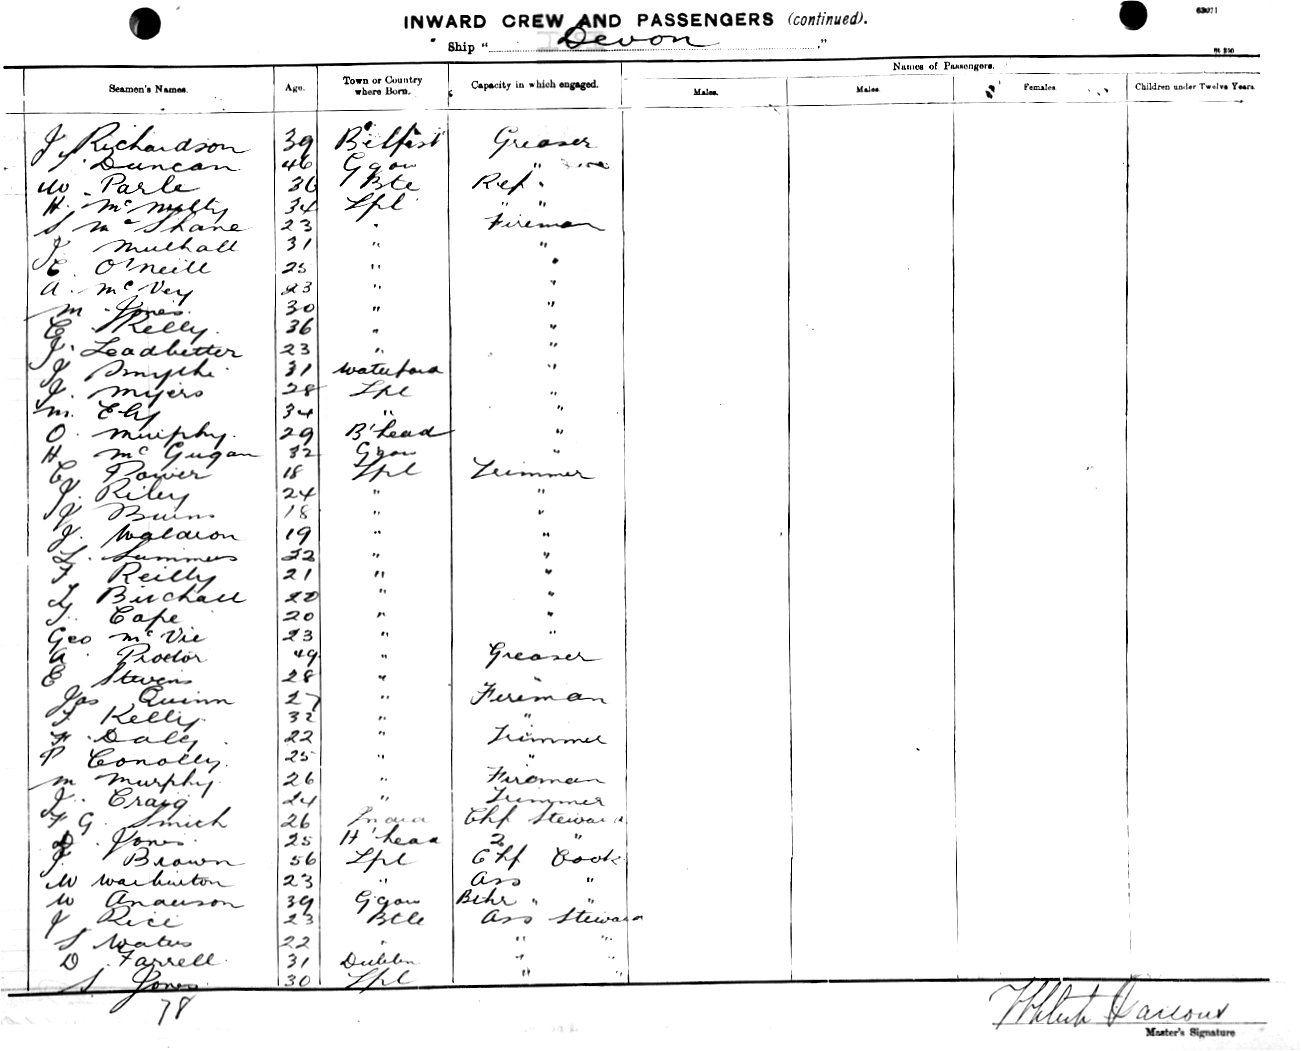 63071
INWARD CREW AND PASSENGERS (continued).
Ship " Devon ."
Names of Passengers.
Seamen's Names. Age. Town or Country where Born. Capacity in which engaged. Males. Males. Females Children under Twelve Years.
J Richardson 39 Belfast Greaser
J Duncan 46 Ggow "
W Parle 36 Bte Ref "
H. McNulty 34 Lpl " "
S McShane 23 " Fireman
J Mulhall 31 " "
C. O'Neill 25 " "
A. McVey 23 " "
M Jones 30 " "
C Kelly 36 " "
J. Leadbetter 23 " "
J Smythe 31 Waterford "
J. Myers 28 Lpl "
M. Ely 34 " "
O. Murphy. 29 B'head "
H McGugan 32 Ggow "
C Power 18 Lpl Trimmer
J. Riley 24 " "
J Burns 18 " "
J. Waldron 19 " "
L. Summers 22 " "
F Reilly 21 " "
T Birchall 20 " "
T. Cape 20 " "
Geo McVie 23 " "
A. Proctor 49 " Greaser
E Stevens 28 " "
Jas Quinn 27 " Fireman
F Kelly 32 " "
H Daley 22 " Trimmer
P Conolly 25 " "
M Murphy 26 " Fireman
J. Craig 24 " Trimmer
F G. Smith 26 Chf Steward
D. Jones 25 H'head 2 "
J. Brown 56 Lpl Chf Cook
W Warburton 23 " Ass "
W Anderson 39 Ggow Bchr " "
J Rice 23 Btle Ass Steward
S Waters 22 " " "
D Farrell 31 Dublin " "
S Jones 30 Lpl " "
78
Master's Signature